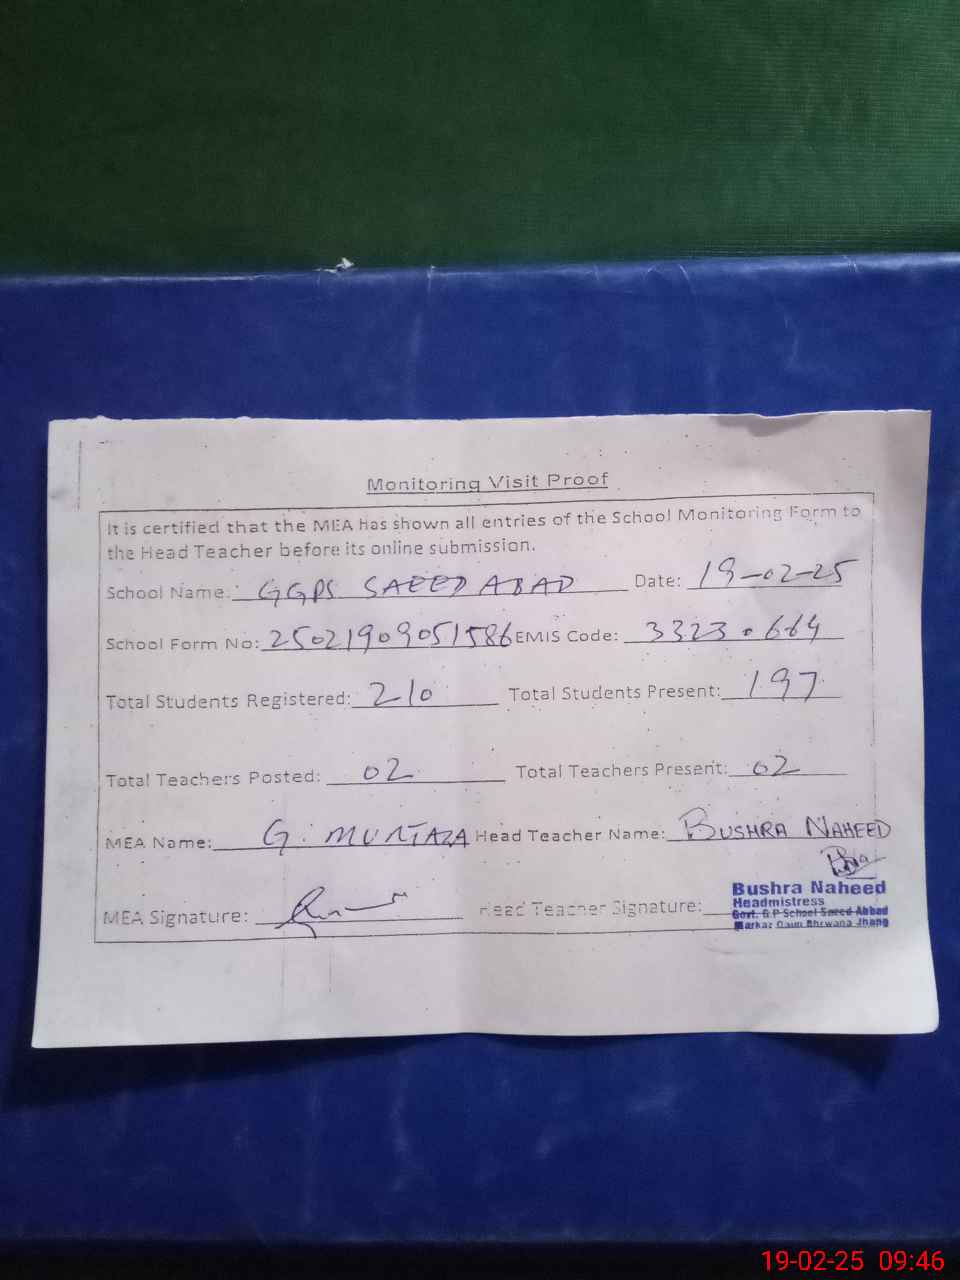 Monitoring Visit Proof
It is certified that the MEA Has shown all entries of the School Monitoring Form to
the Head Teacher before its online submission.
School Name: GGPS SAEED ABAD Date: 19-02-25
School Form No: 25021909051586 EMIS Code: 3323.664
Total Students Registered: 210 Total Students Present: 197
Total Teachers Posted: 02 Total Teachers Present: 02
MEA Name: G. MURTAZA Head Teacher Name: BUSHRA NAHEED
MEA Signature: Head Teacher Signature:
Bushra Naheed
Headmistress
Govt. G.P School Saeed Abbad
Markaz Bhrwana Jhang
19-02-25 09:46